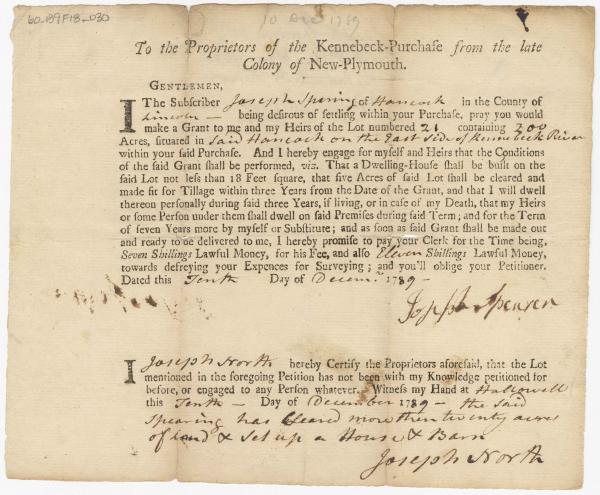 60-B9F18-030
10 Dec 1789
To the Proprietors of the Kennebeck-Purchase from the late
Colony of New-Plymouth.
GENTLEMEN,
I The Subscriber Joseph Spering of Hancock in the County of
Lincoln — being desirous of settling within your Purchase, pray you would
make a Grant to me and my Heirs of the Lot numbered 21 containing 200
Acres, situated in Said Hancock on the East Side of Kennebeck River
within your said Purchase. And I hereby engage for myself and Heirs that the Conditions
of the said Grant shall be performed, viz. That a Dwelling-House shall be built on the
said Lot not less than 18 Feet square, that five Acres of said Lot shall be cleared and
made fit for Tillage within three Years from the Date of the Grant, and that I will dwell
thereon personally during said three Years, if living, or in case of my Death, that my Heirs
or some Person under them shall dwell on said Premises during said Term; and for the Term
of seven Years more by myself or Substitute; and as soon as said Grant shall be made out
and ready to be delivered to me, I hereby promise to pay your Clerk for the Time being,
Seven Shillings Lawful Money, for his Fee, and also Eleven Shillings Lawful Money,
towards defreying your Expences for Surveying; and you'll oblige your Petitioner.
Dated this Tenth Day of Decemr. 1789 —
Joseph Spearen
I Joseph North hereby Certify the Proprietors aforesaid, that the Lot
mentioned in the foregoing Petition has not been with my Knowledge petitioned for
before, or engaged to any Person whatever. Witness my Hand at Hallowell
this Tenth — Day of December 1789 — the Said
Spearing has Cleared more then twenty acres
of land & Set up a House & Barn
Joseph North